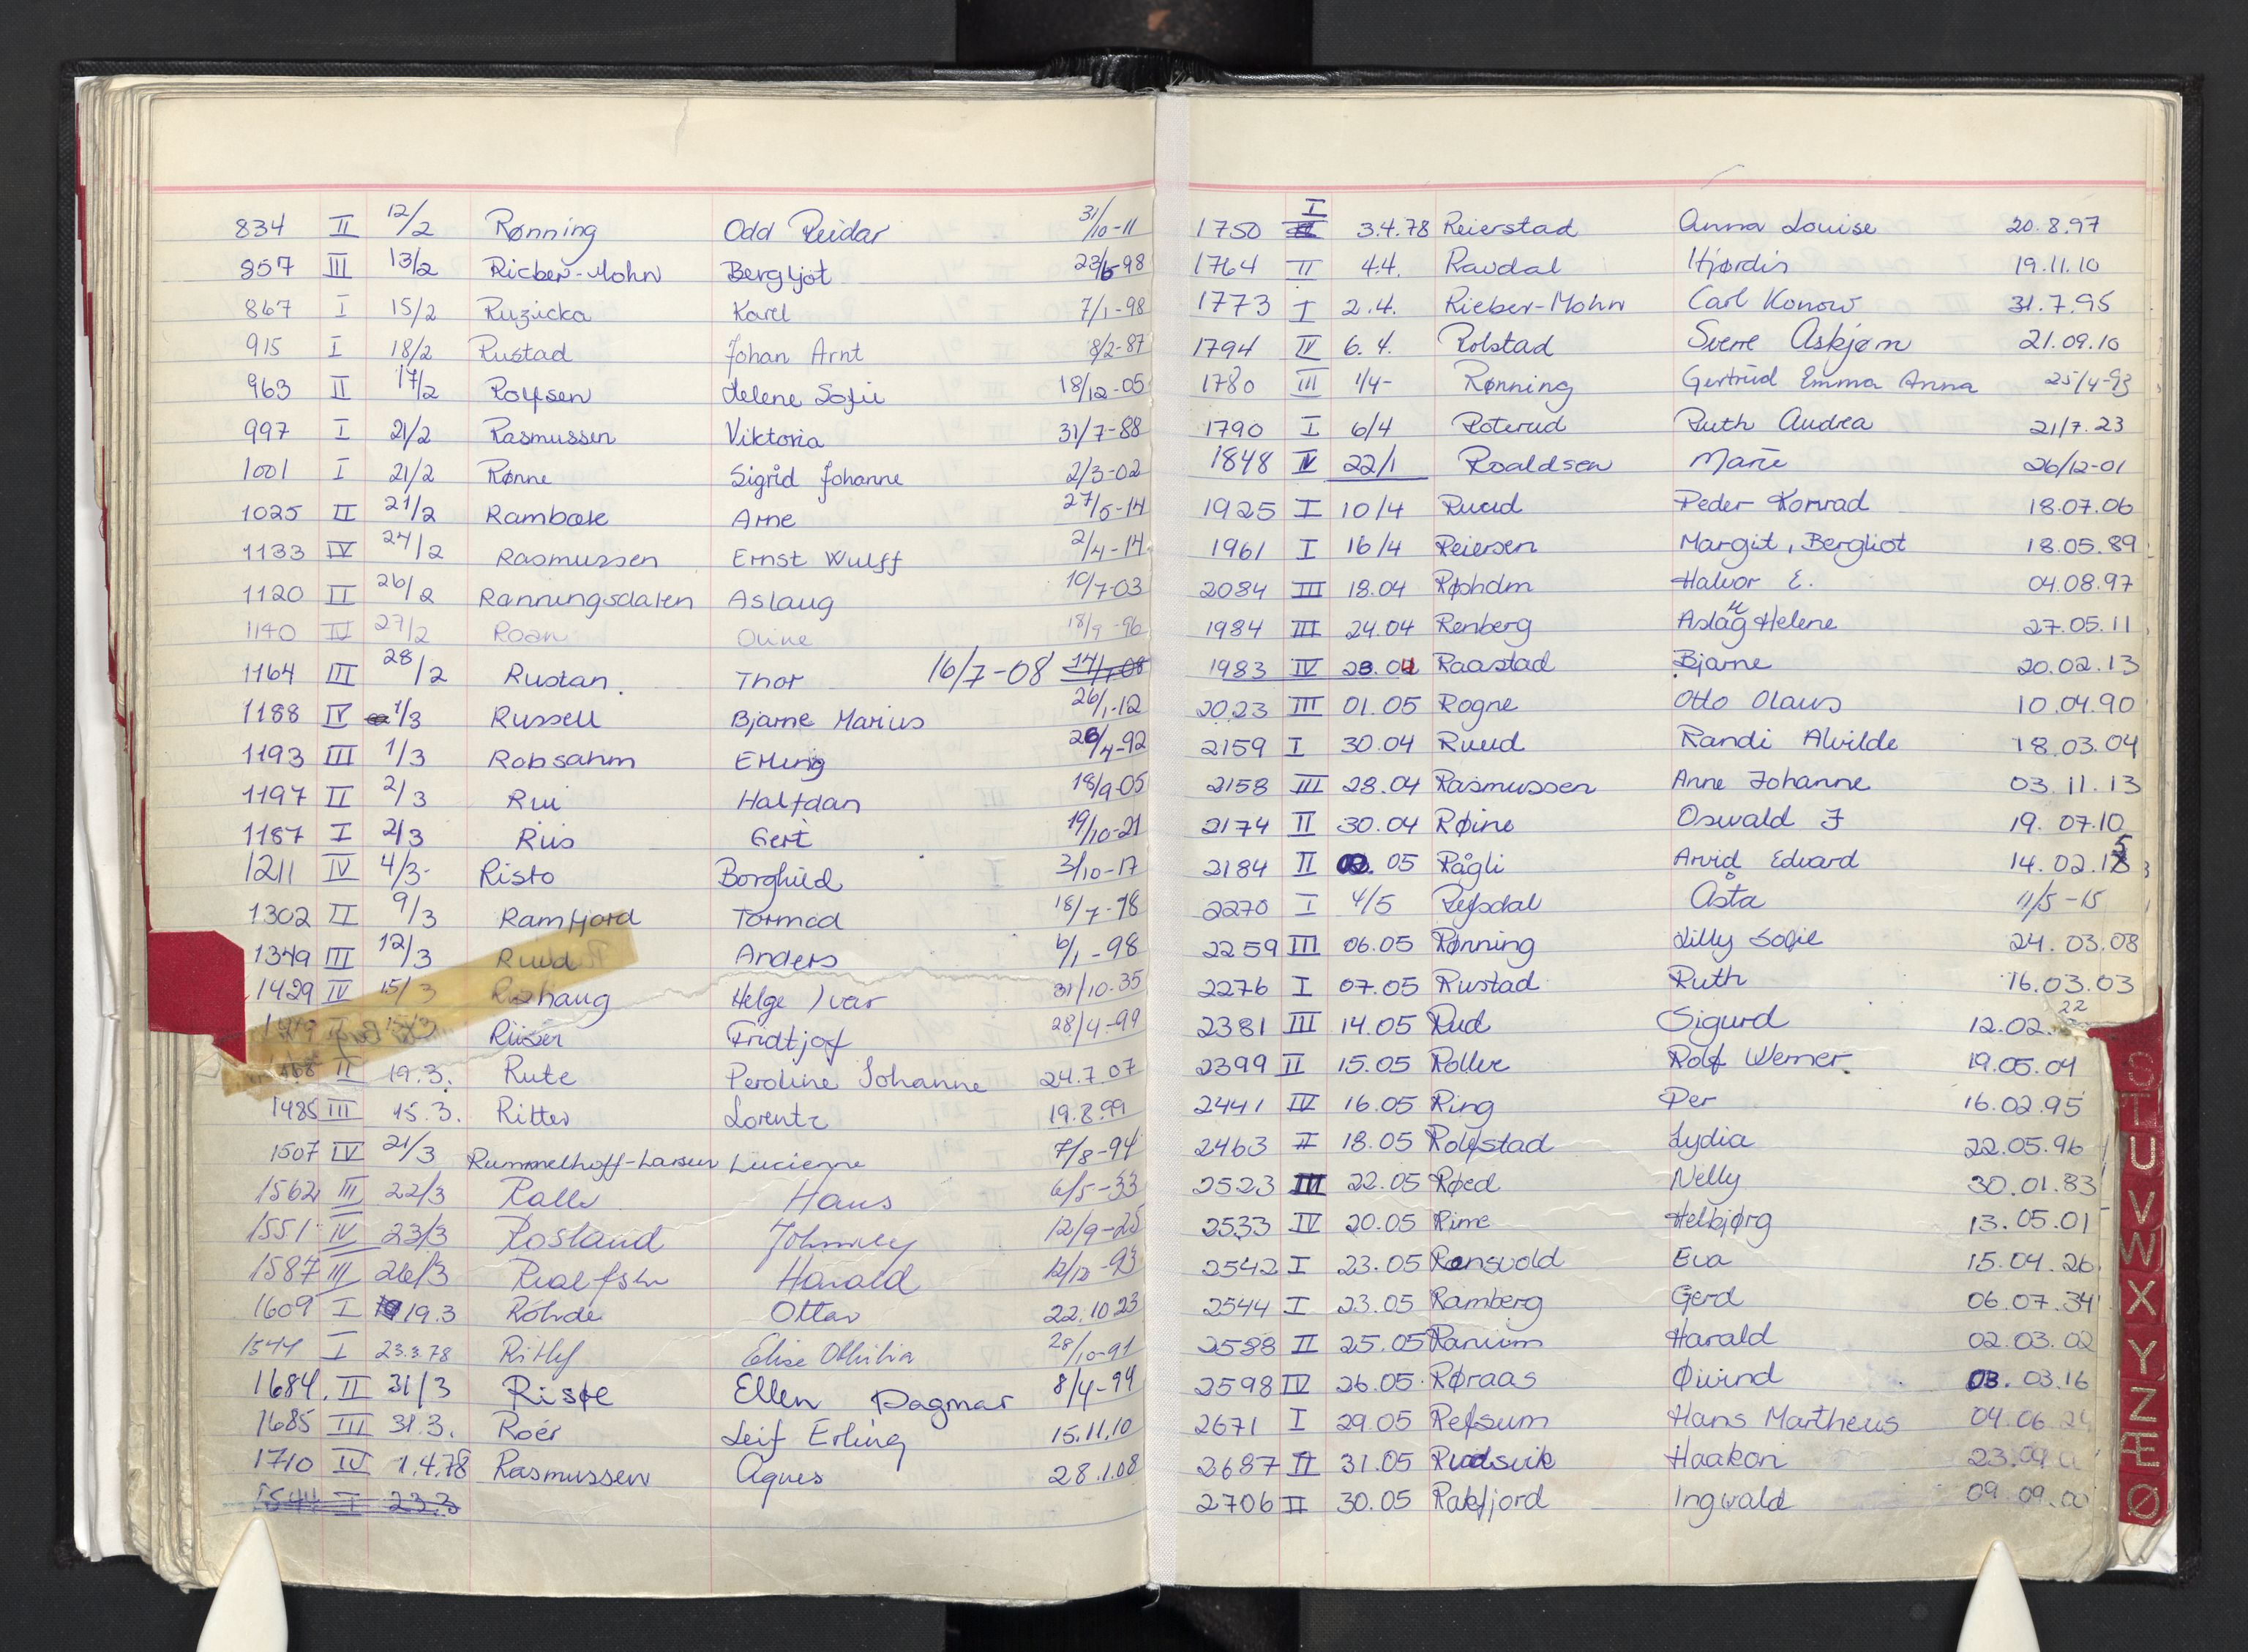 834 II 12/2 Rønning Odd Reidar 31/10-11
857 III 13/2 Rieber-Mohn Bergljot 23/6-98
867 I 15/2 Ruzicka Karel 7/1-98
915 I 18/2 Rustad Johan Arnt 8/2-87
963 II 17/2 Rolfsen Helene Sofie 18/12-05
997 I 21/2 Rasmussen Viktoria 31/7-88
1001 I 21/2 Rønne Sigrid Johanne 2/3-02
1025 II 21/2 Rambøle Arne 27/5-14
1133 IV 24/2 Rasmussen Ernst Wulff 2/4-14
1120 II 26/2 Rønningsdalen Aslaug 10/7-03
1140 IV 27/2 Roan 18/9-96
1164 III 28/2 Rustan Thor 16/7-08 14/7-08
1188 IV 1/3 Russell Bjarne Marius 26/1-12
1193 III 1/3 Robsahm Erling 26/4-92
1197 II 2/3 Rui Halfdan 18/9-05
1187 I 2/3 Riis Gert 19/10-21
1211 IV 4/3 Risto Borghild 3/10-17
1302 II 9/3 Ramfjord Tormod 18/7-18
1349 III 12/3 Ruud Anders 6/1-98
1429 IV 15/3 Rishaug Helge Ivar 31/10-35
Riiser Fridtjof 28/4-99
II 19.3. Rute Peroline Johanne 24.7.07
1485 III 15.3. Ritter Lorentz 19.8.99
1507 IV 21/3 Rummelhoff-Larsen Lucienne 7/8-94
1562 III 22/3 Ralle Hans 6/5-33
1551 IV 23/3 Rosland Johnny 12/9-25
1587 III 26/3 Harald 12/12-93
1609 I 19.3 Rohde Ottar 22.10 23
1544 I 23.3.78 Elise Othilia 28/10-91
1684. II 31/3 Risøe Ellen Dagmar 8/4-94
1685 III 31.3. Roér Leif Erling 15.11.10
1710 IV 1.4.78 Rasmussen Agnes 28.1.08
1544 I 23.3
1750 I 3.4.78 Reierstad Anna Louise 20.8.97
1764 II 4.4. Ravdal Hjørdis 19.11.10
1773 I 2.4. Rieber-Mohn Carl Konow 31.7.95
1794 IV 6.4. Rolstad Sverre Asbjørn 21.09.10
1780 III 1/4- Rønning Gertrud Emma Anna 25/4-93
1790 I 6/4 Roterud Ruth Audrea 21/7.23
1848 IV 22/1 Roaldsen Marie 26/12-01
1925 I 10/4 Ruud Peder Konrad 18.07.06
1961 I 16/4 Reiersen Margit, Bergliot 18.05.89
2084 III 18.04 Røholm Halvor E. 04.08.97
1984 III 24.04 Renberg Aslaug Helene 27.05.11
1983 IV 23.04 Raastad Bjarne 20.02.13
2023 III 01.05 Rogne Otto Olaus 10.04.90
2159 I 30.04 Ruud Randi Alvilde 18.03.04
2158 III 28.04 Rasmussen Anne Johanne 03.11.13
2174 II 30.04 Røine Oswald J 19.07.10
2184 II 02.05 Rågli Arvid Edvard 14.02.15
2270 I 4/5 Refsdal Åsta 11/5-15
2259 III 06.05 Rønning Lilly Sofie 24.03.08
2276 I 07.05 Rustad Ruth 16.03.03
2381 III 14.05 Rud Sigurd 12.02.22
2399 II 15.05 Rolf Werner 19.05.04
2441 IV 16.05 Ring Per 16.02.95
2463 II 18.05 Rolfstad Lydia 22.05.96
2523 III 22.05 Røed Nelly 30.01.83
2533 IV 20.05 Rime Helbjørg 13.05.01
2542 I 23.05 Ronsvold Eva 15.04.26
2544 I 23.05 Ramberg Gerd 06.07.34
2588 II 25.05 Ranum Harald 02.03.02
2598 IV 26.05 Røraas Øivind 03.03.16
2671 I 29.05 Refsum Hans Martheus 04.06.24
2687 II 31.05 Rudsvik Haakon 23.09
2706 II 30.05 Rakfjord Ingvald 09.09.00
S
T
U
V
W
X
Y
Z
Æ
Ø